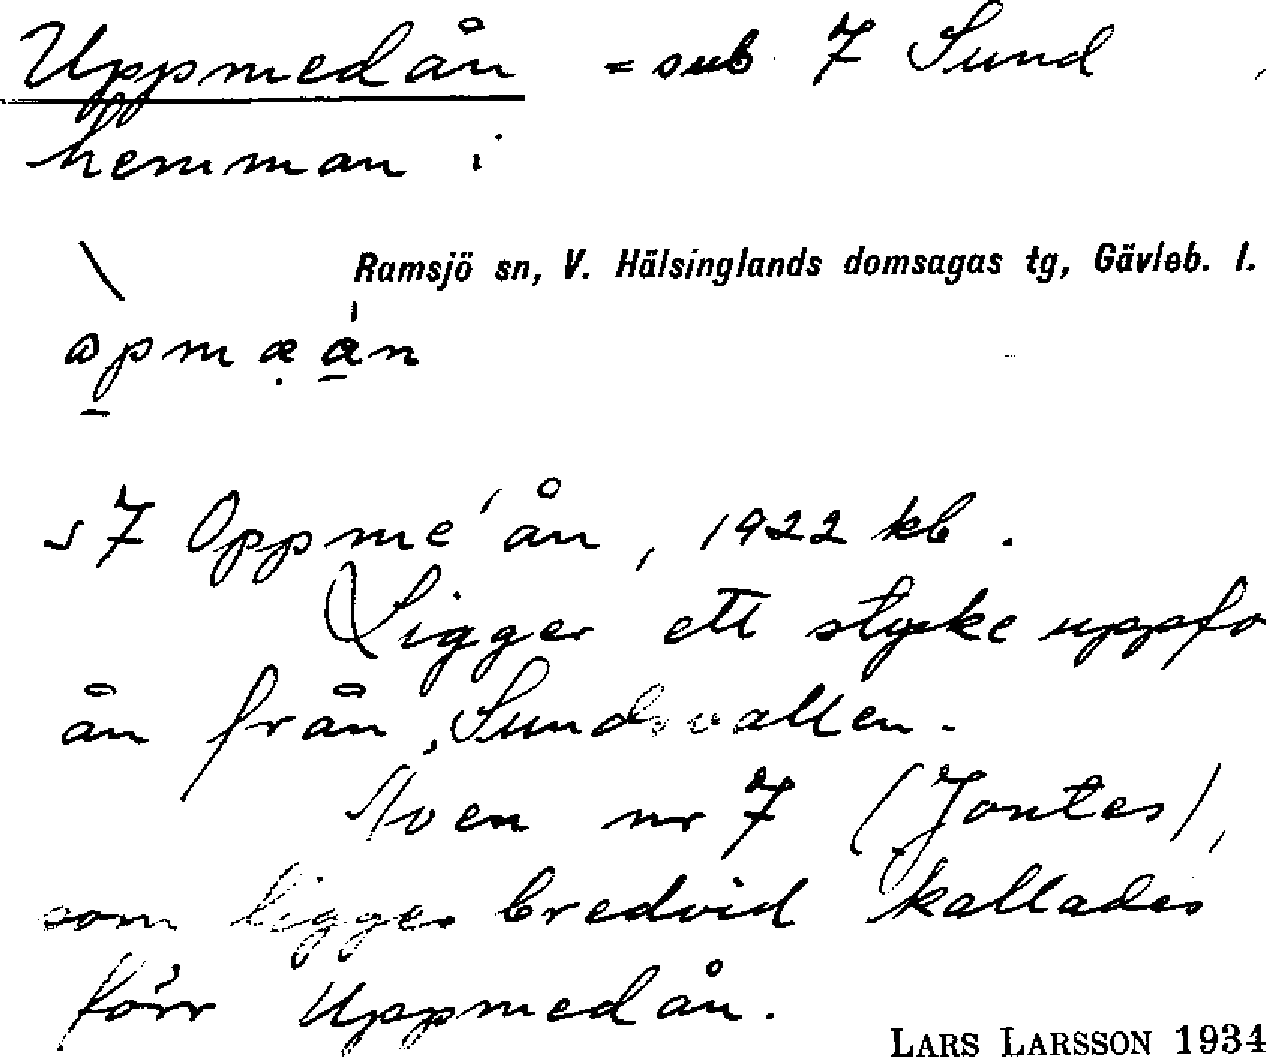 Uppmedån = sub 7 Sund
hemman i
Ramsjö sn, V. Hälsinglands domsagas tg, Gävleb. l.
7 Oppme'ån, 1922 kb.
Ligger ett stycke uppför
ån från Sundsvallen.
Moen nr 7 (Jontes),
som ligger bredvid kallades
förr Uppmedån.
LARS LARSSON 1934